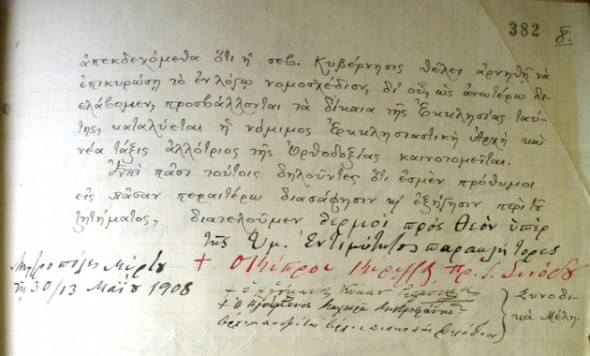 382 8.
ἀπεκδεχόμεθα ὅτι ἡ σεβ. Κυβέρνησις θέλει ἀρνηθῆ νὰ
ἐπικυρώσῃ τὸ ἐν λόγῳ νομοσχέδιον, δι' οὗ, ὡς ἀνωτέρω δι-
ελάβομεν, προσβάλλονται τὰ δίκαια τῆς Ἐκκλησίας ταύ-
της, καταλύεται ἡ νόμιμος Ἐκκλησιαστικὴ Ἀρχὴ καὶ
νέα τάξις ἀλλότριος τῆς Ὀρθοδοξίας καινοτομεῖται.
Ἐπὶ πᾶσι τούτοις δηλοῦντες ὅτι ἐσμὲν πρόθυμοι
εἰς πᾶσαν περαιτέρω διασάφησιν κ' ἐξήγησιν περὶ τοῦ
ζητήματος, διατελοῦμεν θερμοὶ πρὸς Θεὸν ὑπὲρ
τῆς Ὑμ. Ἐντιμότητος παρακλήτορες
Μητροπόλει
τῇ 30/13 Μαΐου 1908
+ Ὁ Κύπρου Κύριλλος Πρ. Συνόδου
+ ὁ Ἡγούμενος Μαχαιρᾶ Μητροφάνης
Συνοδι-
κὰ Μέλη